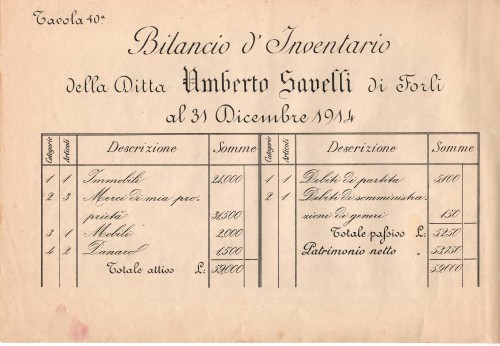 Tavola 40ª
Bilancio d'Inventario
della Ditta Umberto Savelli di Forlì
al 31 Dicembre 1914
Categorie Articoli Descrizione Somme Categorie Articoli Descrizione Somme
1 1 Immobili 24,000 1 1 Debiti di partita 5100
2 3 Merci di mia pro 2 1 Debiti di somministra
prietà 31,500 zione di generi 150
3 1 Mobili 2,000 Totale passivo £: 5250
4 2 Danaro 1,500 Patrimonio netto „ 53,750
Totale attivo £: 59,000 59,000